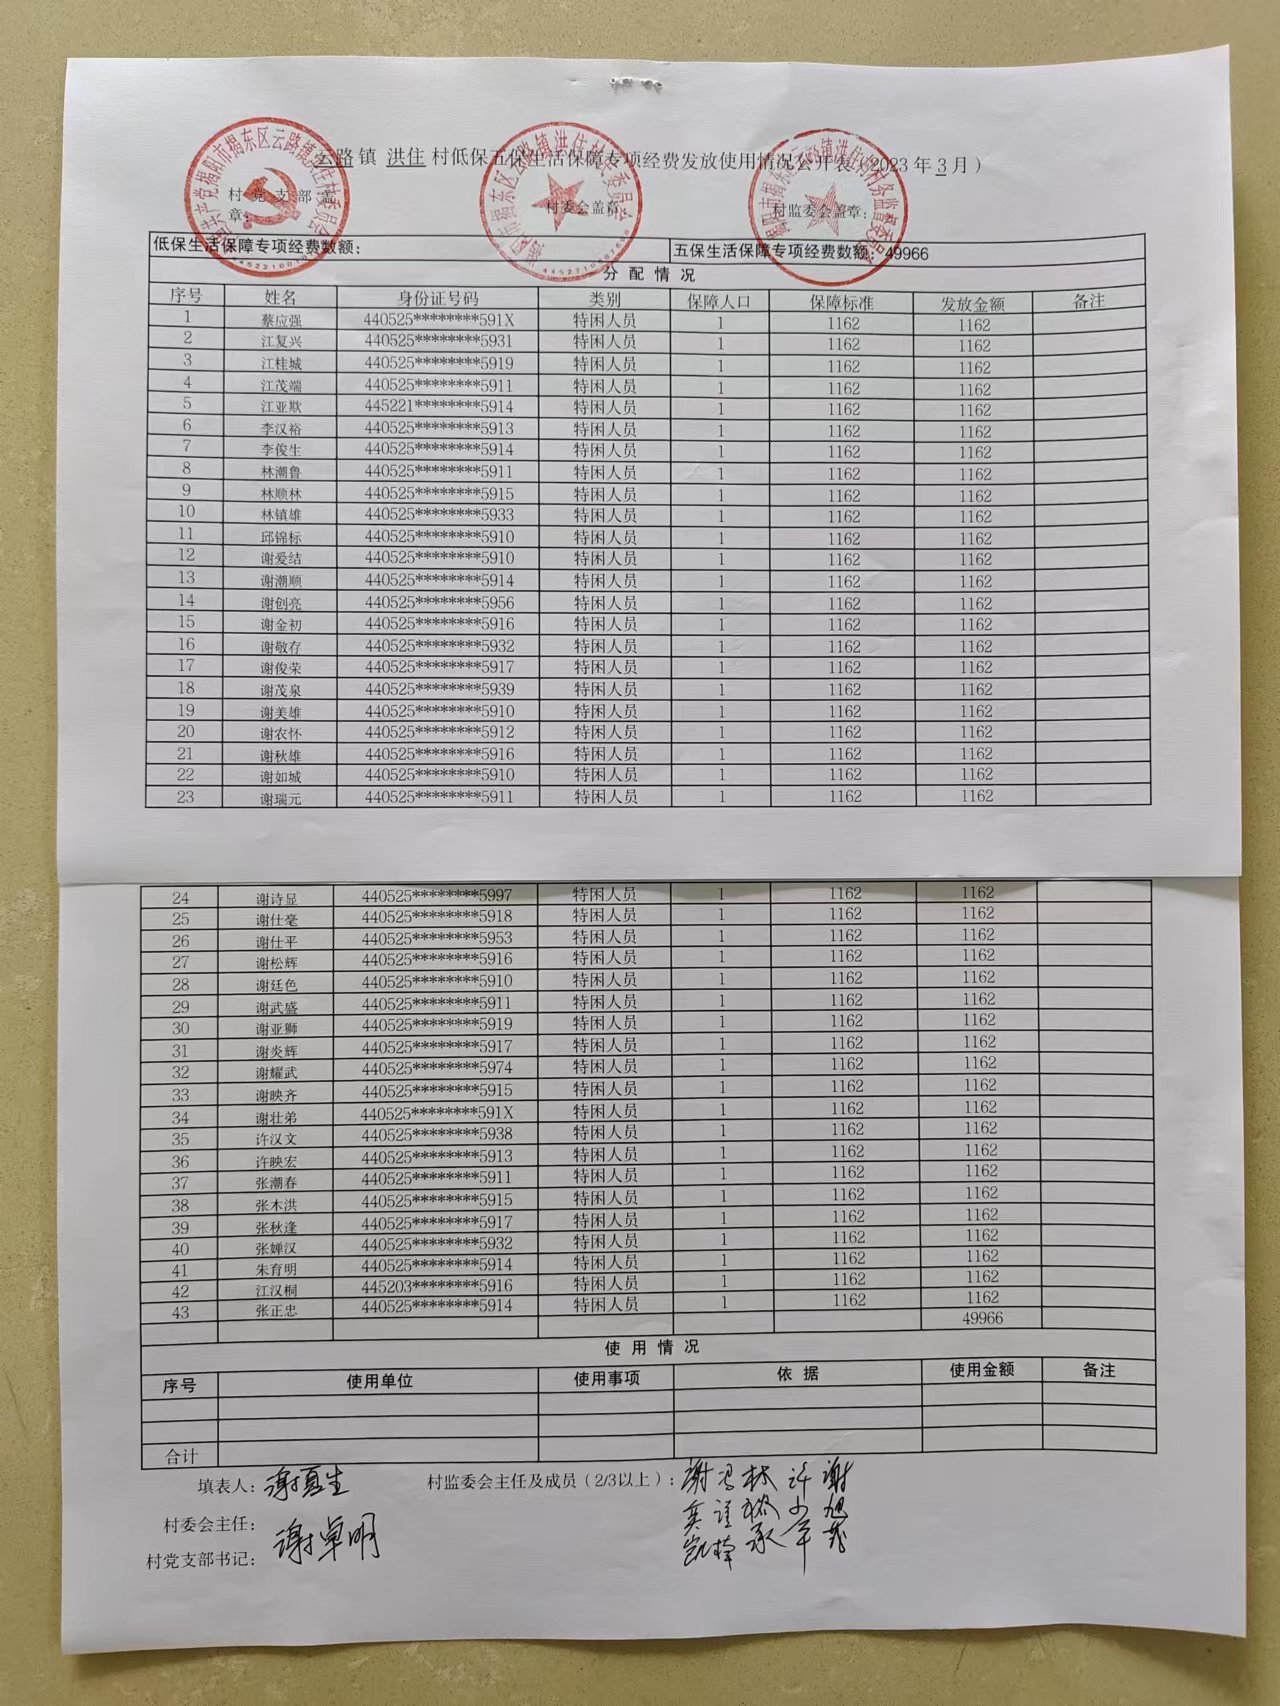 云路 镇 洪住 村低保五保生活保障专项经费发放使用情况公开表（2023 年 3 月）
村党支部盖章： 村委会盖章： 村监委会盖章：
低保生活保障专项经费数额： 五保生活保障专项经费数额：49966
分 配 情 况
序号 姓名 身份证号码 类别 保障人口 保障标准 发放金额 备注
1 蔡应强 440525********591X 特困人员 1 1162 1162
2 江复兴 440525********5931 特困人员 1 1162 1162
3 江桂城 440525********5919 特困人员 1 1162 1162
4 江茂端 440525********5911 特困人员 1 1162 1162
5 江亚欺 445221********5914 特困人员 1 1162 1162
6 李汉裕 440525********5913 特困人员 1 1162 1162
7 李俊生 440525********5914 特困人员 1 1162 1162
8 林潮鲁 440525********5911 特困人员 1 1162 1162
9 林顺林 440525********5915 特困人员 1 1162 1162
10 林镇雄 440525********5933 特困人员 1 1162 1162
11 邱锦标 440525********5910 特困人员 1 1162 1162
12 谢爱结 440525********5910 特困人员 1 1162 1162
13 谢潮顺 440525********5914 特困人员 1 1162 1162
14 谢创亮 440525********5956 特困人员 1 1162 1162
15 谢金初 440525********5916 特困人员 1 1162 1162
16 谢敬存 440525********5932 特困人员 1 1162 1162
17 谢俊荣 440525********5917 特困人员 1 1162 1162
18 谢茂泉 440525********5939 特困人员 1 1162 1162
19 谢美雄 440525********5910 特困人员 1 1162 1162
20 谢农怀 440525********5912 特困人员 1 1162 1162
21 谢秋雄 440525********5916 特困人员 1 1162 1162
22 谢如城 440525********5910 特困人员 1 1162 1162
23 谢瑞元 440525********5911 特困人员 1 1162 1162
24 谢诗显 440525********5997 特困人员 1 1162 1162
25 谢仕毫 440525********5918 特困人员 1 1162 1162
26 谢仕平 440525********5953 特困人员 1 1162 1162
27 谢松辉 440525********5916 特困人员 1 1162 1162
28 谢廷色 440525********5910 特困人员 1 1162 1162
29 谢武盛 440525********5911 特困人员 1 1162 1162
30 谢亚狮 440525********5919 特困人员 1 1162 1162
31 谢炎辉 440525********5917 特困人员 1 1162 1162
32 谢耀武 440525********5974 特困人员 1 1162 1162
33 谢映齐 440525********5915 特困人员 1 1162 1162
34 谢壮弟 440525********591X 特困人员 1 1162 1162
35 许汉文 440525********5938 特困人员 1 1162 1162
36 许映宏 440525********5913 特困人员 1 1162 1162
37 张潮春 440525********5911 特困人员 1 1162 1162
38 张木洪 440525********5915 特困人员 1 1162 1162
39 张秋逢 440525********5917 特困人员 1 1162 1162
40 张婵汉 440525********5932 特困人员 1 1162 1162
41 朱育明 440525********5914 特困人员 1 1162 1162
42 江汉桐 445203********5916 特困人员 1 1162 1162
43 张正忠 440525********5914 特困人员 1 1162 1162
49966
使 用 情 况
序号 使用单位 使用事项 依 据 使用金额 备注
合计
填表人： 村监委会主任及成员（2/3以上）：
村委会主任： 谢卓明
村党支部书记：